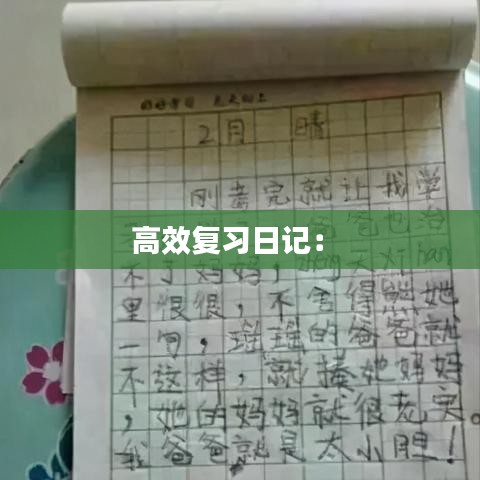 好好学习 天天向上
2月 晴
刚考完就让我学
高效复习日记：
不了妈妈，妈天xihan
里很很，不舍得熊她
一句，瑶瑶的爸爸就
不这样，就揍她妈妈
，她的妈妈就很老实。
我爸爸就是太小胆！